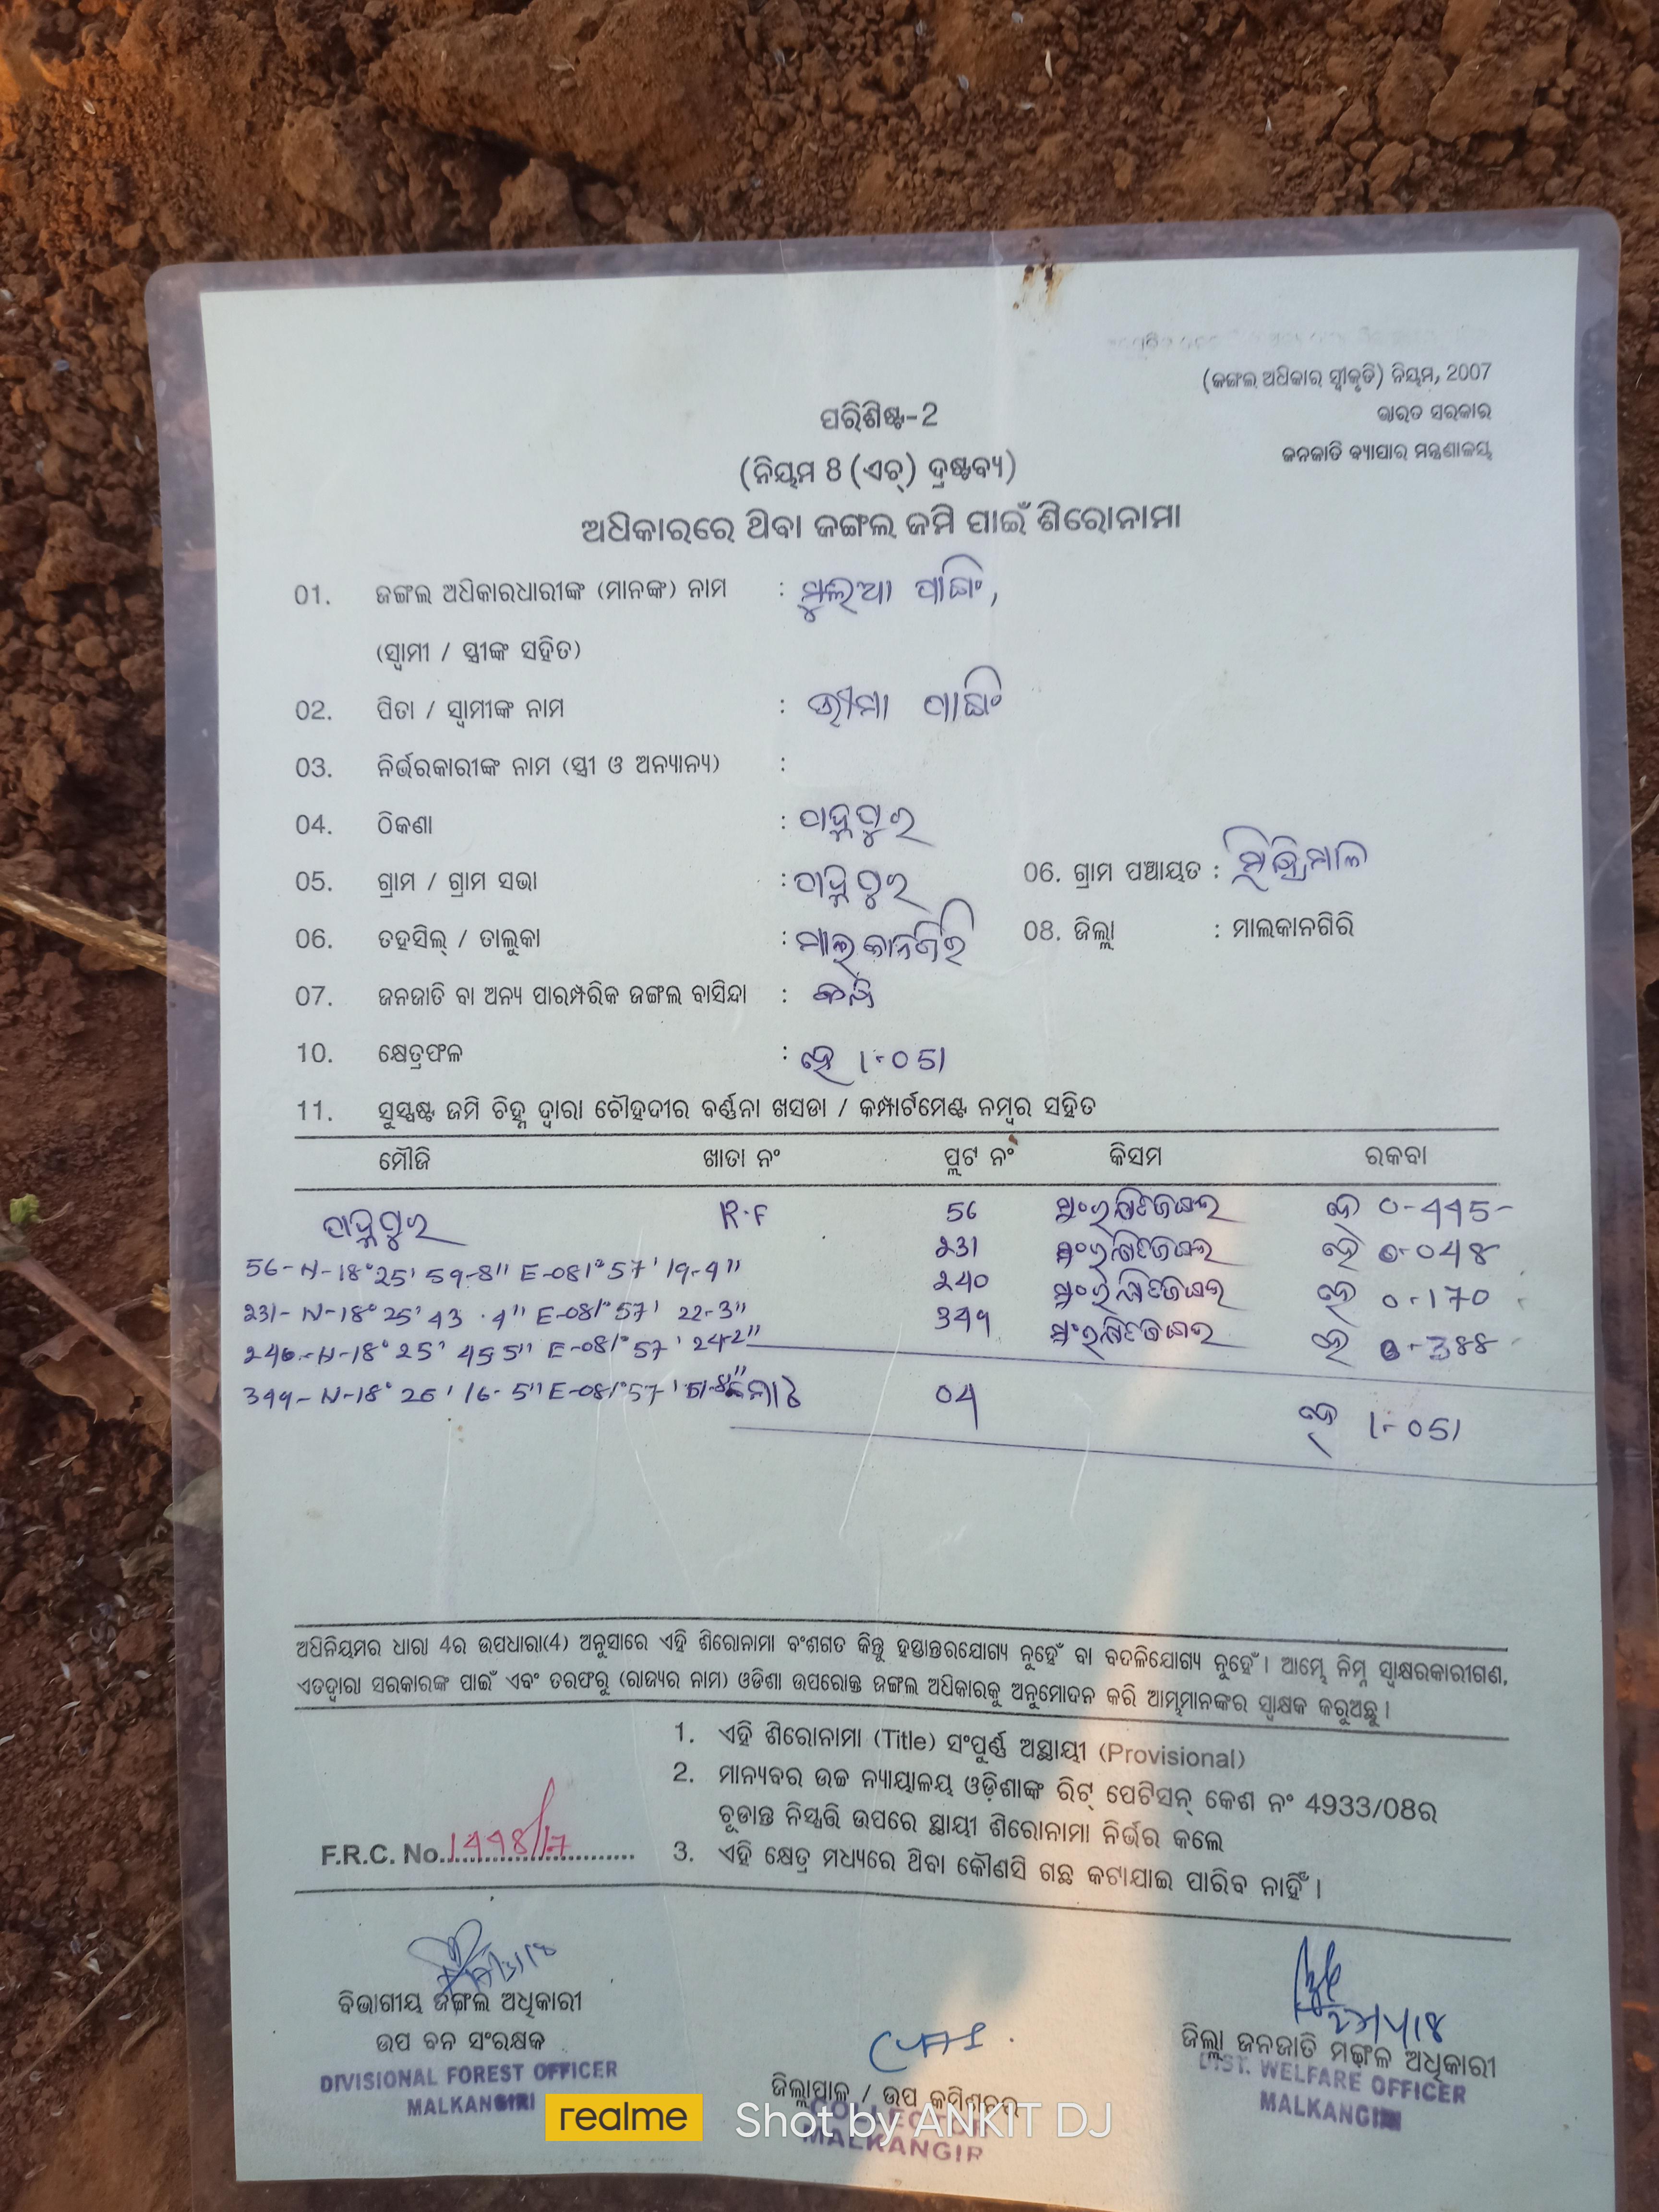 (ଜଙ୍ଗଲ ଅଧିକାର ସ୍ୱୀକୃତି) ନିୟମ, 2007
ଭାରତ ସରକାର
ଜନଜାତି ବ୍ୟାପାର ମନ୍ତ୍ରଣାଳୟ
ପରିଶିଷ୍ଟ-2
(ନିୟମ 8 (ଏଚ୍) ଦ୍ରଷ୍ଟବ୍ୟ)
ଅଧିକାରରେ ଥିବା ଜଙ୍ଗଲ ଜମି ପାଇଁ ଶିରୋନାମା
01. ଜଙ୍ଗଲ ଅଧିକାରଧାରୀଙ୍କ (ମାନଙ୍କ) ନାମ :
(ସ୍ୱାମୀ / ସ୍ତ୍ରୀଙ୍କ ସହିତ)
02. ପିତା / ସ୍ୱାମୀଙ୍କ ନାମ :
03. ନିର୍ଭରକାରୀଙ୍କ ନାମ (ସ୍ତ୍ରୀ ଓ ଅନ୍ୟାନ୍ୟ) :
04. ଠିକଣା :
05. ଗ୍ରାମ / ଗ୍ରାମ ସଭା : 06. ଗ୍ରାମ ପଞ୍ଚାୟତ :
06. ତହସିଲ୍ / ତାଲୁକା : ମାଲକାନଗିରି 08. ଜିଲ୍ଲା : ମାଲକାନଗିରି
07. ଜନଜାତି ବା ଅନ୍ୟ ପାରମ୍ପରିକ ଜଙ୍ଗଲ ବାସିନ୍ଦା :
10. କ୍ଷେତ୍ରଫଳ : ହେ 1-051
11. ସୁସ୍ପଷ୍ଟ ଜମି ଚିହ୍ନ ଦ୍ୱାରା ଚୌହଦୀର ବର୍ଣ୍ଣନା ଖସଡା / କମ୍ପାର୍ଟମେଣ୍ଟ ନମ୍ବର ସହିତ
ମୌଜି ଖାତା ନଂ ପ୍ଲଟ ନଂ କିସମ ରକବା
R.F 56 ହେ 0-445-
56-N-18°25' 59-8" E-081°57' 19-4" 231 ହେ 0-048
231-N-18°25' 43.4" E-081°57' 22-3" 240 ହେ 0-170
240-N-18°25' 45 5" E-081°57' 24-2" 349 ହେ 0-388
349-N-18°26' 16-5" E-081°57' 04 ହେ 1-051
ଅଧିନିୟମର ଧାରା 4ର ଉପଧାରା(4) ଅନୁସାରେ ଏହି ଶିରୋନାମା ବଂଶଗତ କିନ୍ତୁ ହସ୍ତାନ୍ତରଯୋଗ୍ୟ ନୁହେଁ ବା ବଦଳିଯୋଗ୍ୟ ନୁହେଁ। ଆମ୍ଭେ ନିମ୍ନ ସ୍ୱାକ୍ଷରକାରୀଗଣ,
ଏତଦ୍ୱାରା ସରକାରଙ୍କ ପାଇଁ ଏବଂ ତରଫରୁ (ରାଜ୍ୟର ନାମ) ଓଡିଶା ଉପରୋକ୍ତ ଜଙ୍ଗଲ ଅଧିକାରକୁ ଅନୁମୋଦନ କରି ଆମ୍ଭମାନଙ୍କର ସ୍ୱାକ୍ଷକ କରୁଅଛୁ।
1. ଏହି ଶିରୋନାମା (Title) ସଂପୂର୍ଣ୍ଣ ଅସ୍ଥାୟୀ (Provisional)
2. ମାନ୍ୟବର ଉଚ୍ଚ ନ୍ୟାୟାଳୟ ଓଡ଼ିଶାଙ୍କ ରିଟ୍ ପେଟିସନ୍ କେଶ ନଂ 4933/08ର
ଚୂଡାନ୍ତ ନିସ୍ପତ୍ତି ଉପରେ ସ୍ଥାୟୀ ଶିରୋନାମା ନିର୍ଭର କଲେ
3. ଏହି କ୍ଷେତ୍ର ମଧ୍ୟରେ ଥିବା କୌଣସି ଗଛ କଟାଯାଇ ପାରିବ ନାହିଁ।
F.R.C. No.
ବିଭାଗୀୟ ଜଙ୍ଗଲ ଅଧିକାରୀ
ଉପ ବନ ସଂରକ୍ଷକ
DIVISIONAL FOREST OFFICER
MALKANGIRI
ଜିଲ୍ଲାପାଳ / ଉପ କମିଶନର
COLLECTOR
MALKANGIRI
ଜିଲ୍ଲା ଜନଜାତି ମଙ୍ଗଳ ଅଧିକାରୀ
DIST. WELFARE OFFICER
MALKANGIRI
realme Shot by ANKIT DJ